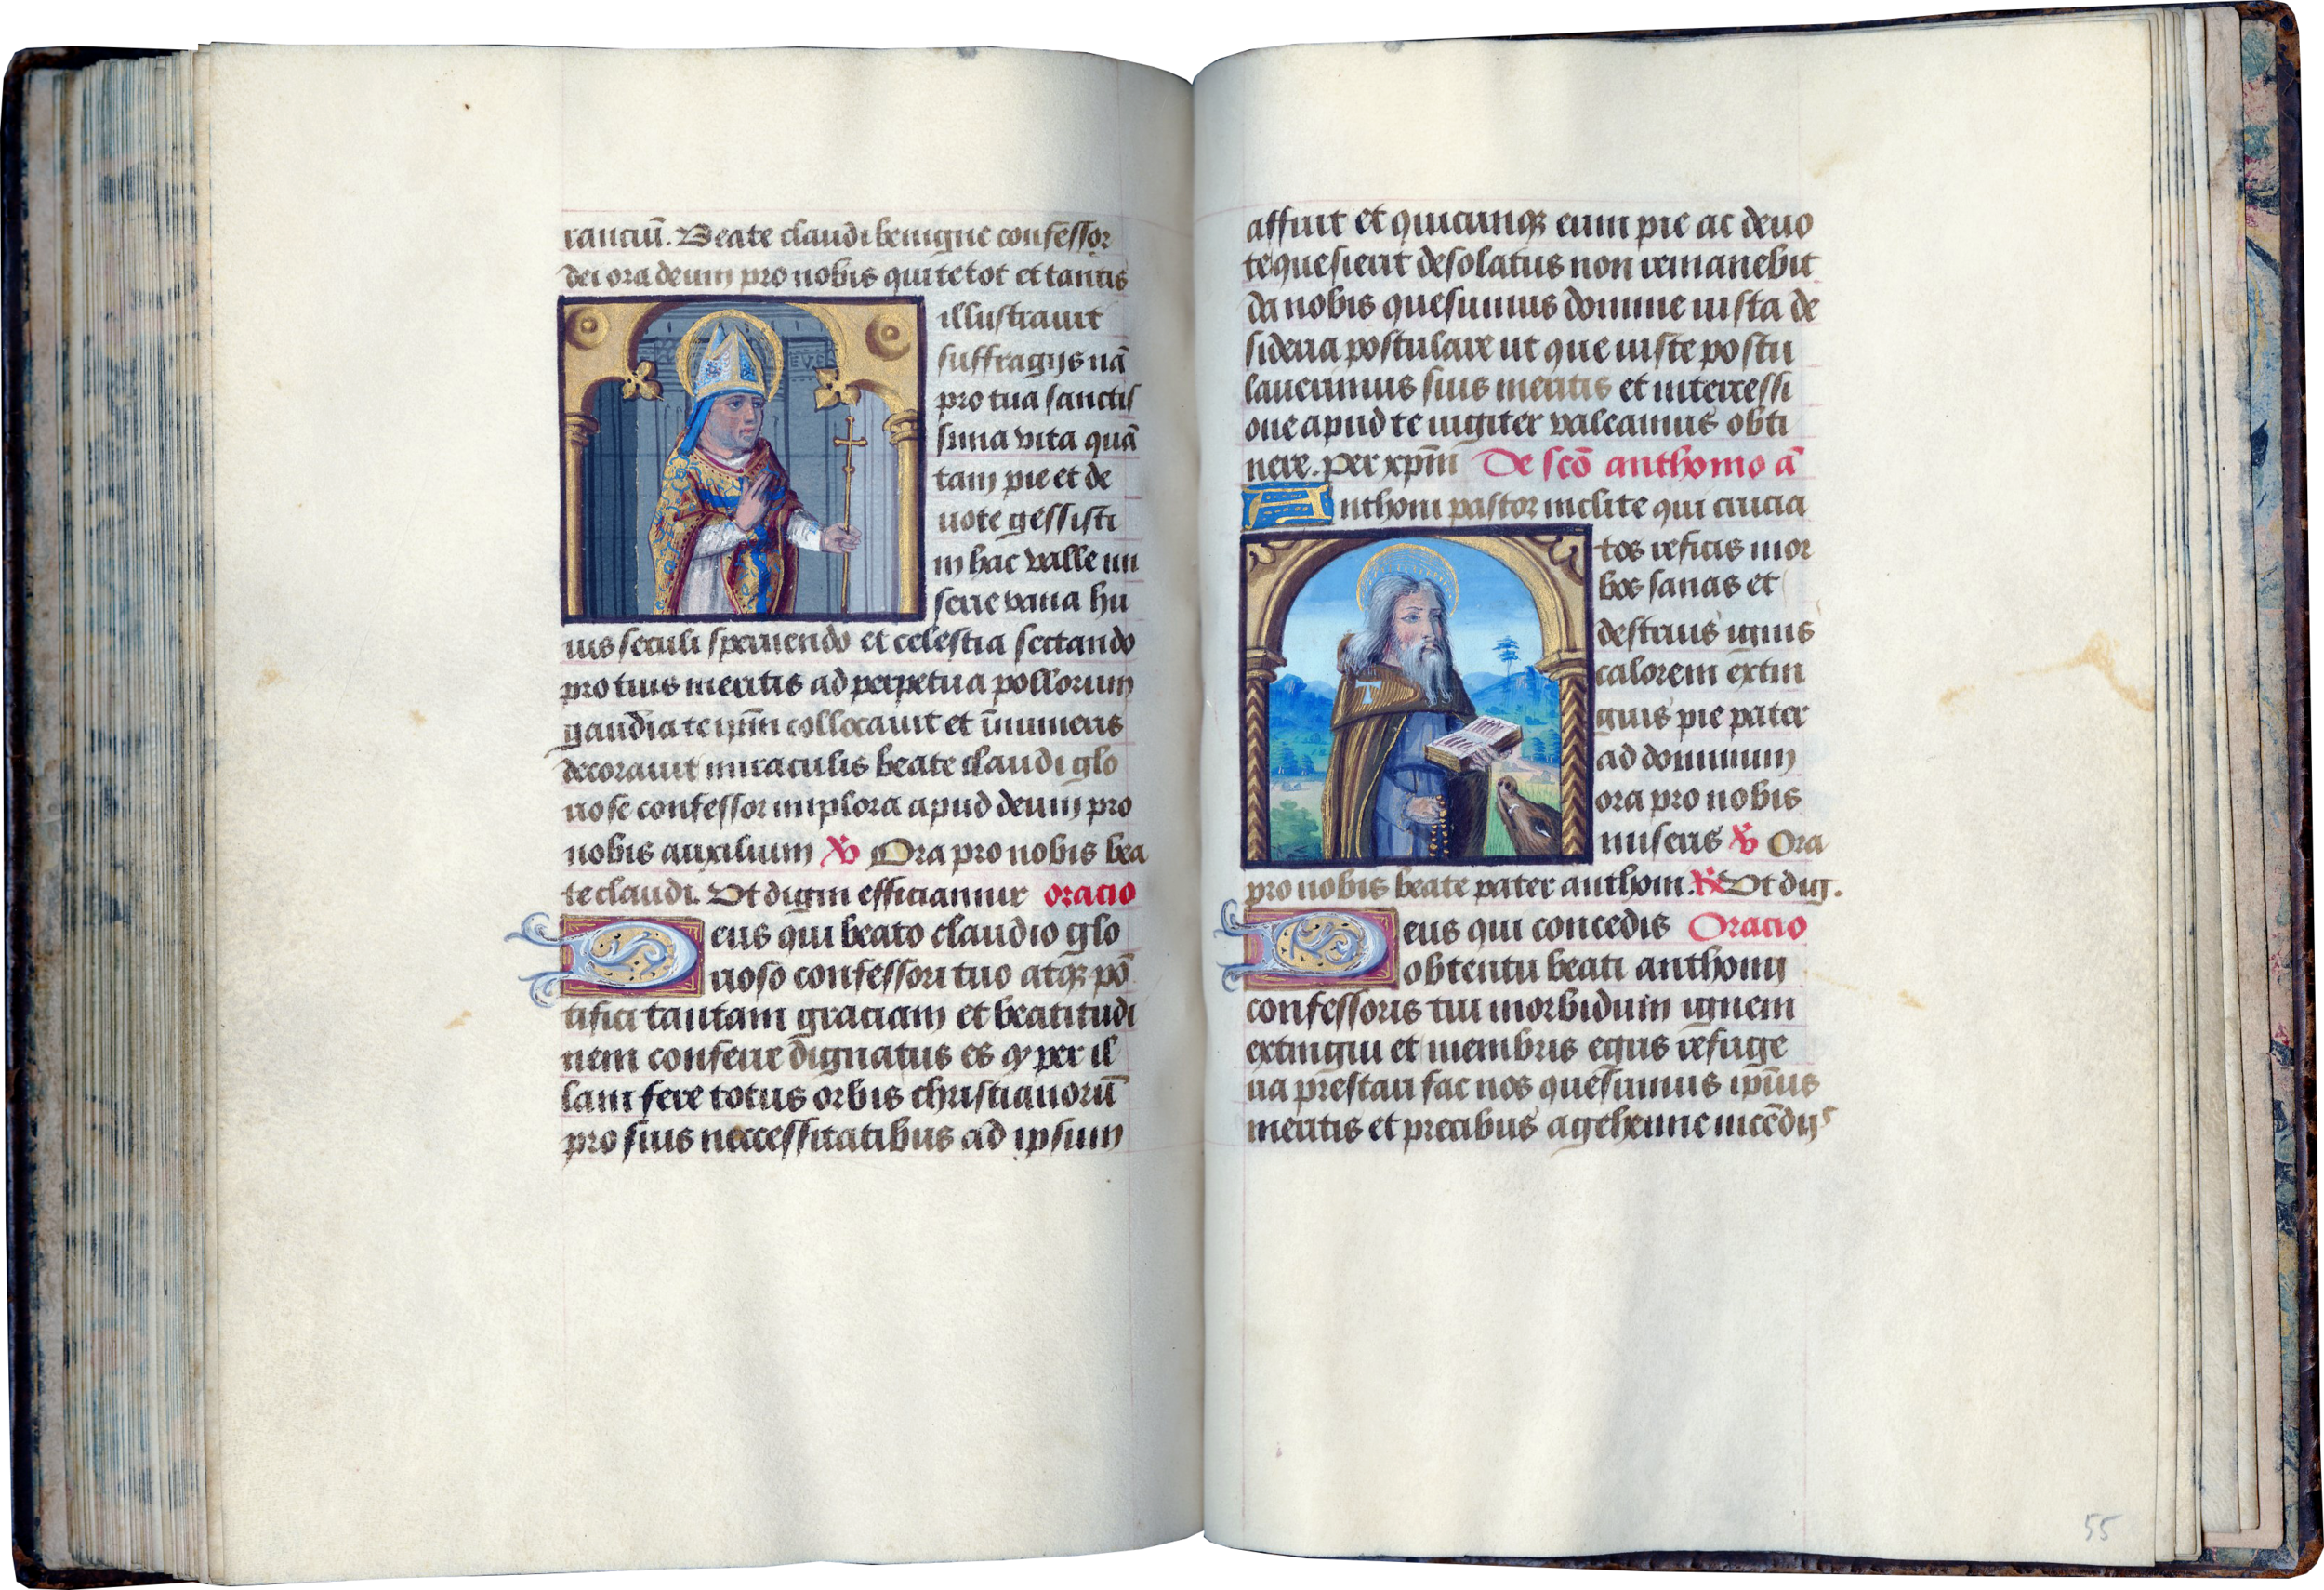 ranciū. Beate claudi benigne confessor
dei ora deum pro nobis qui te tot et tantis
illustrauit
suffragijs nā
pro tua sanctis
sima vita quā
tam pie et de
uote gessisti
in hac valle mi
serie vana hu
ius seculi spernendo et celestia sectando
pro tuis meritis ad perpetua pollorum
gaudia te ip̄m collocauit et īnumeris
decorauit miraculis beate claudi glo
riose confessor implora apud deum pro
nobis auxilium ℣ Ora pro nobis bea
te claudi. Vt digni efficiamur oracio
Deus qui beato claudio glo
rioso confessori tuo atqꝫ pō
tifici tantam graciam et beatitudi
nem conferre dignatus es ꝙ per il
lam fere totus orbis christianorū
pro suis neccessitatibus ad ipsum
affuit et quicunqꝫ eum pie ac deuo
te quesierit desolatus non remanebit
da nobis quesumus domine iusta de
sideria postulare ut que iuste postu
lauerimus suis meritis et intercessi
one apud te iugiter valeamus obti
nere. per xp̄m De scō anthonio ā
Anthoni pastor inclite qui crucia
tos reficis mor
bos sanas et
destruis ignis
calorem extin
guis pie pater
ad dominum
ora pro nobis
miseris ℣ Ora
pro nobis beate pater anthoni. ℟ Vt dig.
Deus qui concedis Oracio
obtentu beati anthonij
confessoris tui morbidum ignem
extingui et membris egris refrige
ria prestari fac nos quesumus ip̄ius
meritis et precibus a gehenne incēdijs
55